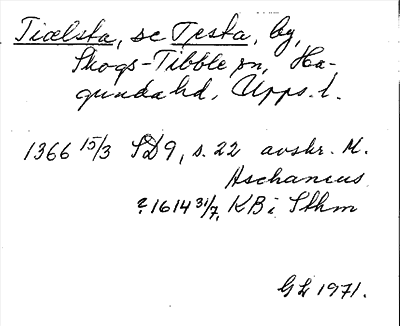 Tiælsta, se Tjesta, by,
Skogs-Tibble sn, Ha-
gunda hd, Upps. l.
1366 15/3 SD 9, s. 22 avskr. M.
Aschaneus
?1614 31/7, KB i Sthm
GL 1971.